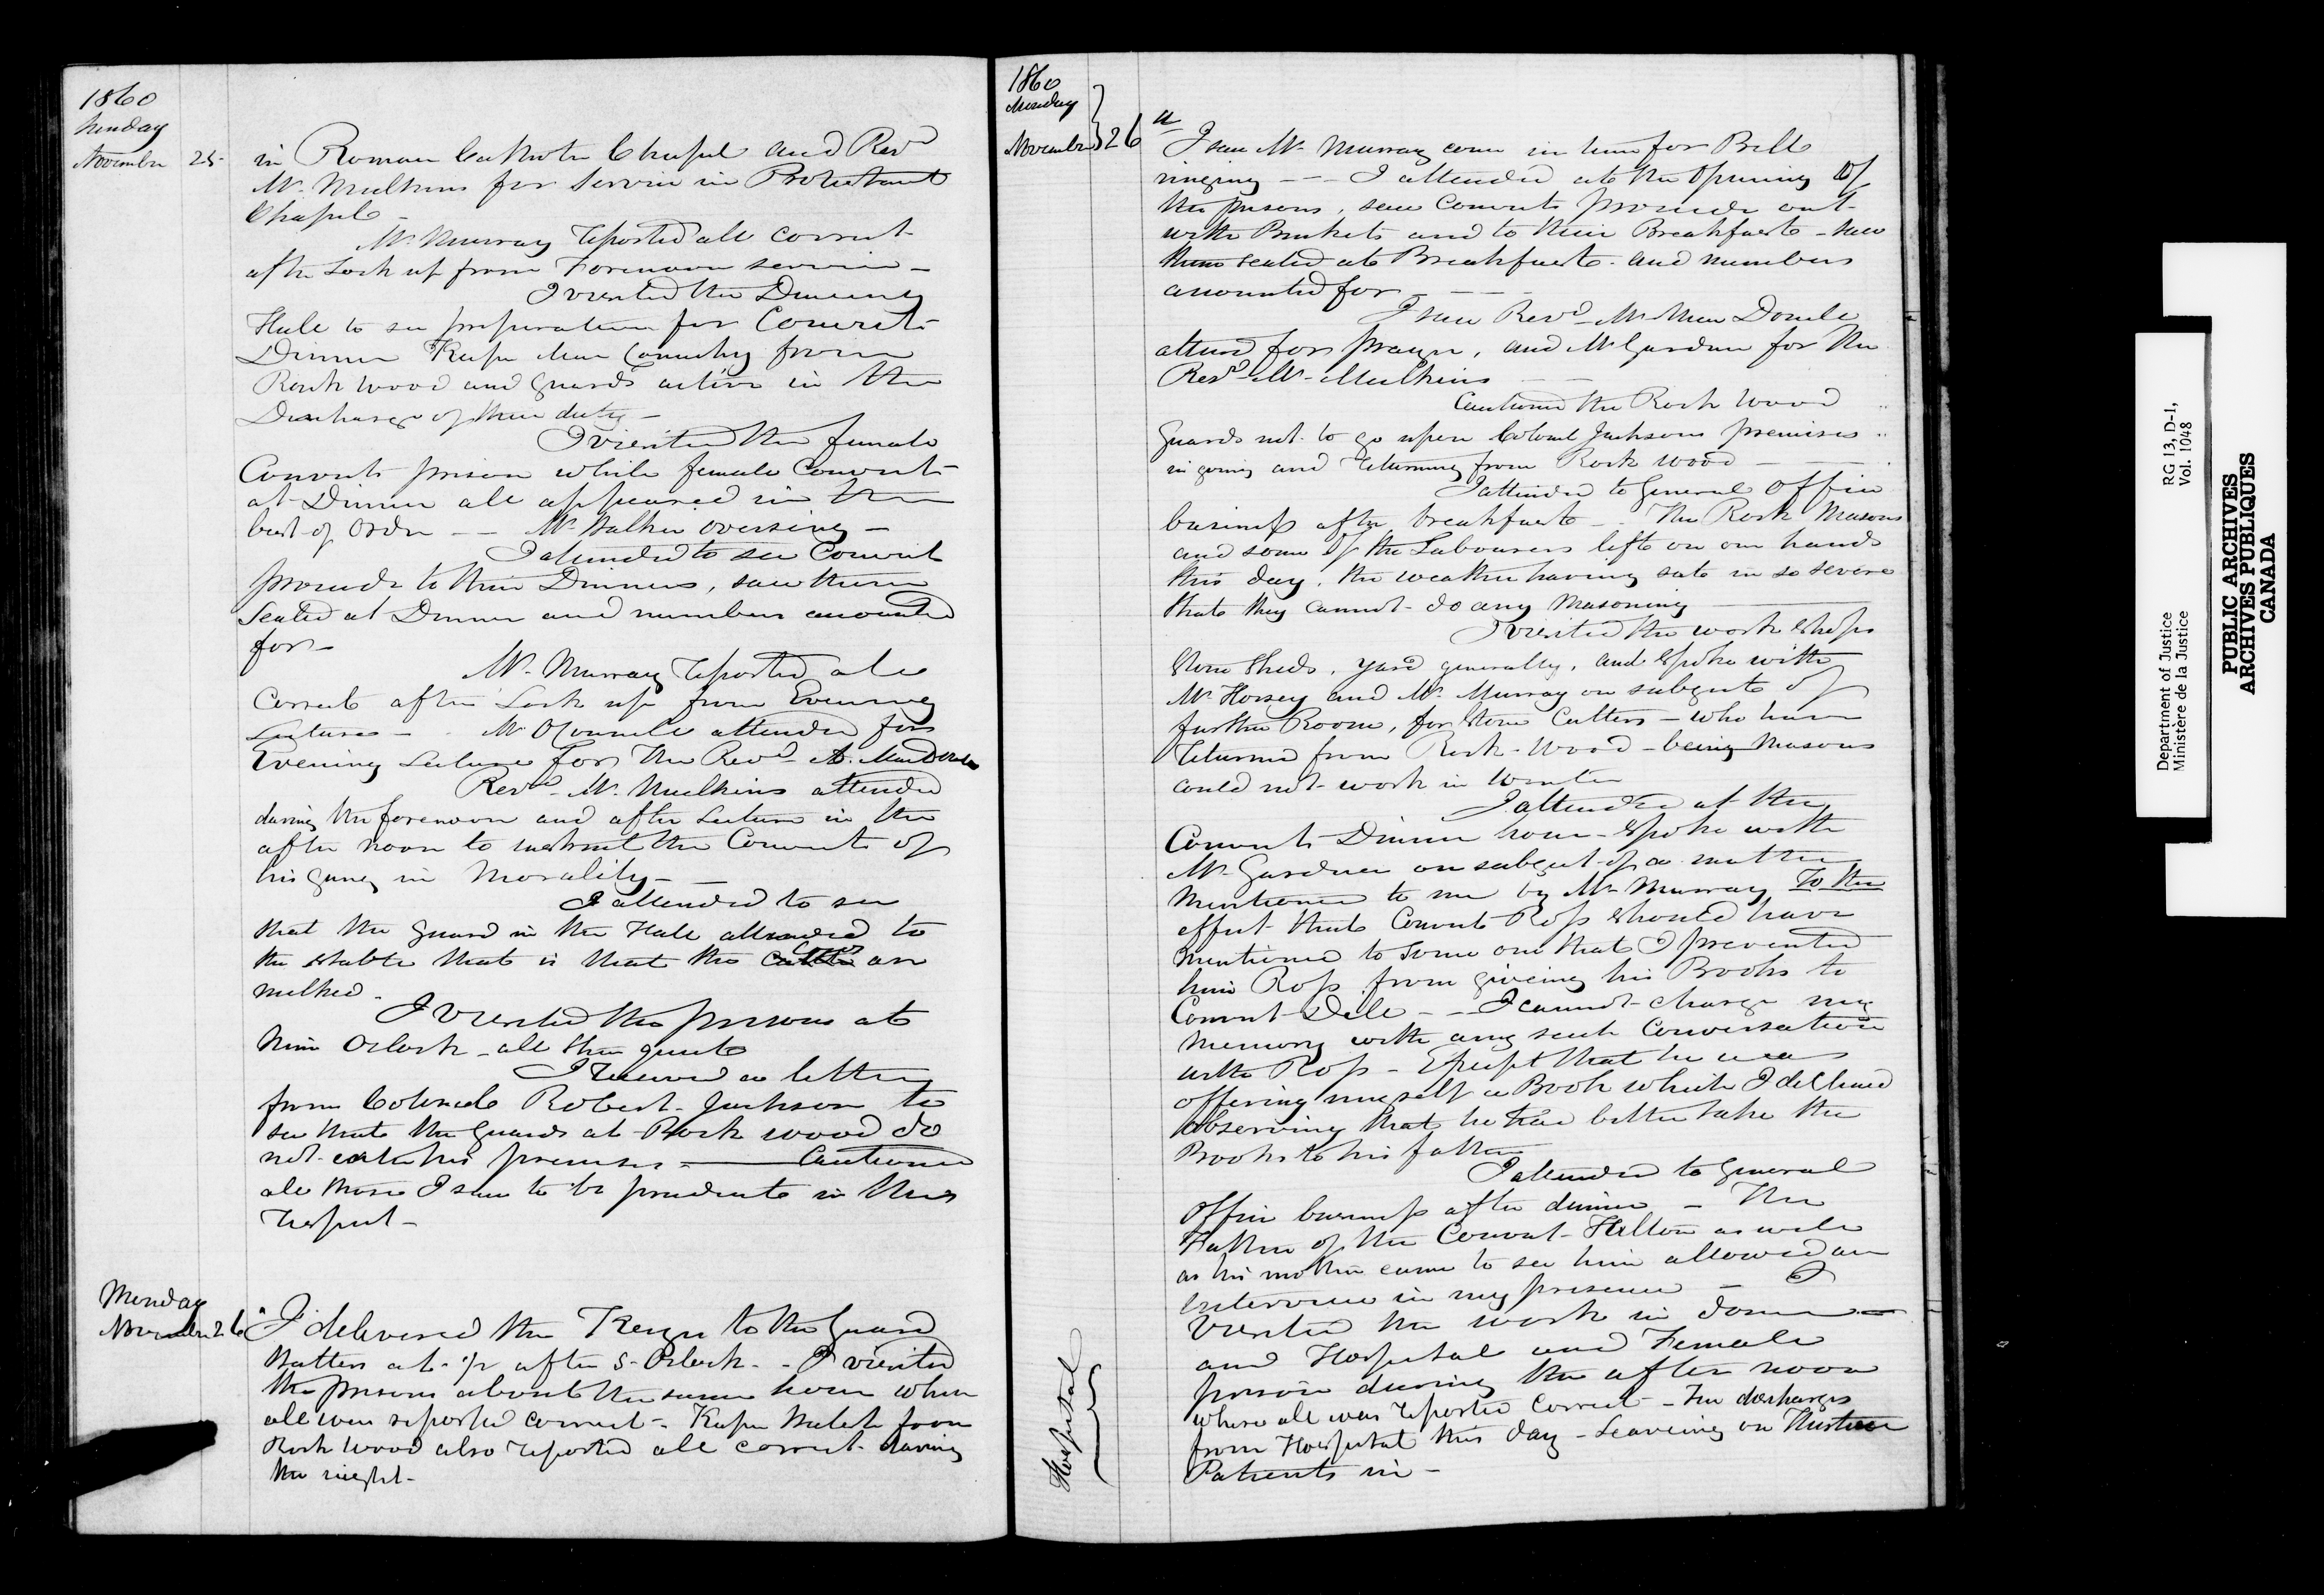 1860
Sunday
November 25
in Roman Catholic Chapel and Revd
Mr. Mulkins for Service in Protestant
Chapel -
Mr. Murray reported all correct
after Lock up from Forenoon service -
I visited the Dining
Hall to see preparation for Convicts
Dinner Keeper MacConachy from
Rock wood and Guards active in the
Discharge of their duty -
I visited the female
Convicts prison while female Convicts
at Dinner all appeared in the
best of Order -- Mrs. Walker overseeing -
I attended to see Convicts
proceede to their Dinners, saw them
Seated at Dinner and numbers accounted
for -
Mr. Murray reported all
Correct after Lock up from Evening
Lectures - Mr. OConnele attended for
Evening Lecture for the Revd A. MacDonele
Revd Mr. Mulkins attended
during the forenoon and after Lecture in the
after noon to instruct the Convicts of
his in Morality -
I attended to see
that the guard in the Hall attended to
the stable that is that the Cows are
milked.
I visited the prisons at
Nine Oclock - all then quiete
I received a letter
from Colonele Robert Jackson to
see that the Guards at Rock wood do
not enter his premises - Cautioned
all those I saw to be prudente in this
respect -
Monday
November 26
I delivered the Keys to the Guard
Watters at 1/4 after 5 Oclock - I visited
the prisons about the same hour when
all were reported correct - Keeper Walsh from
Rock Wood also reported all correct during
the night -
1860
Monday
November 26
I saw Mr. Murray come in time for Bell
ringing --- I attended at the Opening of
the prisons, saw Convicts proceede out
with Buckets and to their Breakfaste - saw
them seated at Breakfaste and numbers
accounted for - - -
I saw Revd Mr. MacDonele
attend for prayer, and Mr Gardner for the
Revd Mr. Mulkins - -
Cautioned the Rock Wood
Guards not to go upon Colonel Jacksons premises
in going and returning from Rock Wood -
I attended to General Office
business after breakfaste - The Rock Masons
and some of the Labourers left on our hands
this day, the weather having sate in so severe
that they Cannot do any Masoning
I visited the work shops
Stone Sheds, yard generally, and spoke with
Mr. Horsey and Mr. Murray on subjects of
further Room, for Stone Cutters - who have
returned from Rock-Wood - being Masons
could not work in Winter
I attended at the
Convicts Dinner hour - spoke with
Mr. Gardner on subject of a matter
mentioned to me by Mr. Murray To the
effect that Convict Ross should have
mentioned to some one that I prevented
him Ross from giveing his Books to
Convict Dele -- I cannot charge my
memory with any such Conversation
with Ross - Except that he was
offering myself a Book which I declined
observing that he had better take the
Books to his father
I attended to General
Office business after dinner - The
Father of the Convict Hilton as well
as his mother came to see him allowed an
Interview in my presence - I
visited the work in dome -
and Hospital and Female
prison during the after noon
where all was reported Correct - discharges
from Hospital this day - Leaveing on Thirteen
Patients in -
Hospital
Department of Justice
Ministère de la Justice
RG 13, D-1,
Vol. 1048
PUBLIC ARCHIVES
ARCHIVES PUBLIQUES
CANADA